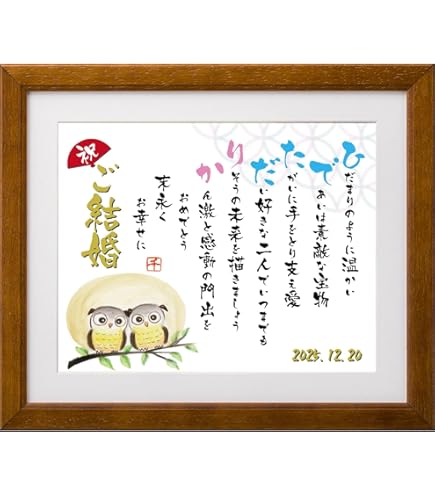 ひだまりのように温かい
であいは素敵な宝物
たがいに手をとり支え愛
だい好きな二人でいつまでも
りそうの未来を描きましょう
かん激と感動の門出を
おめでとう
末永く
お幸せに
千
祝
ご結婚
2025.12.20